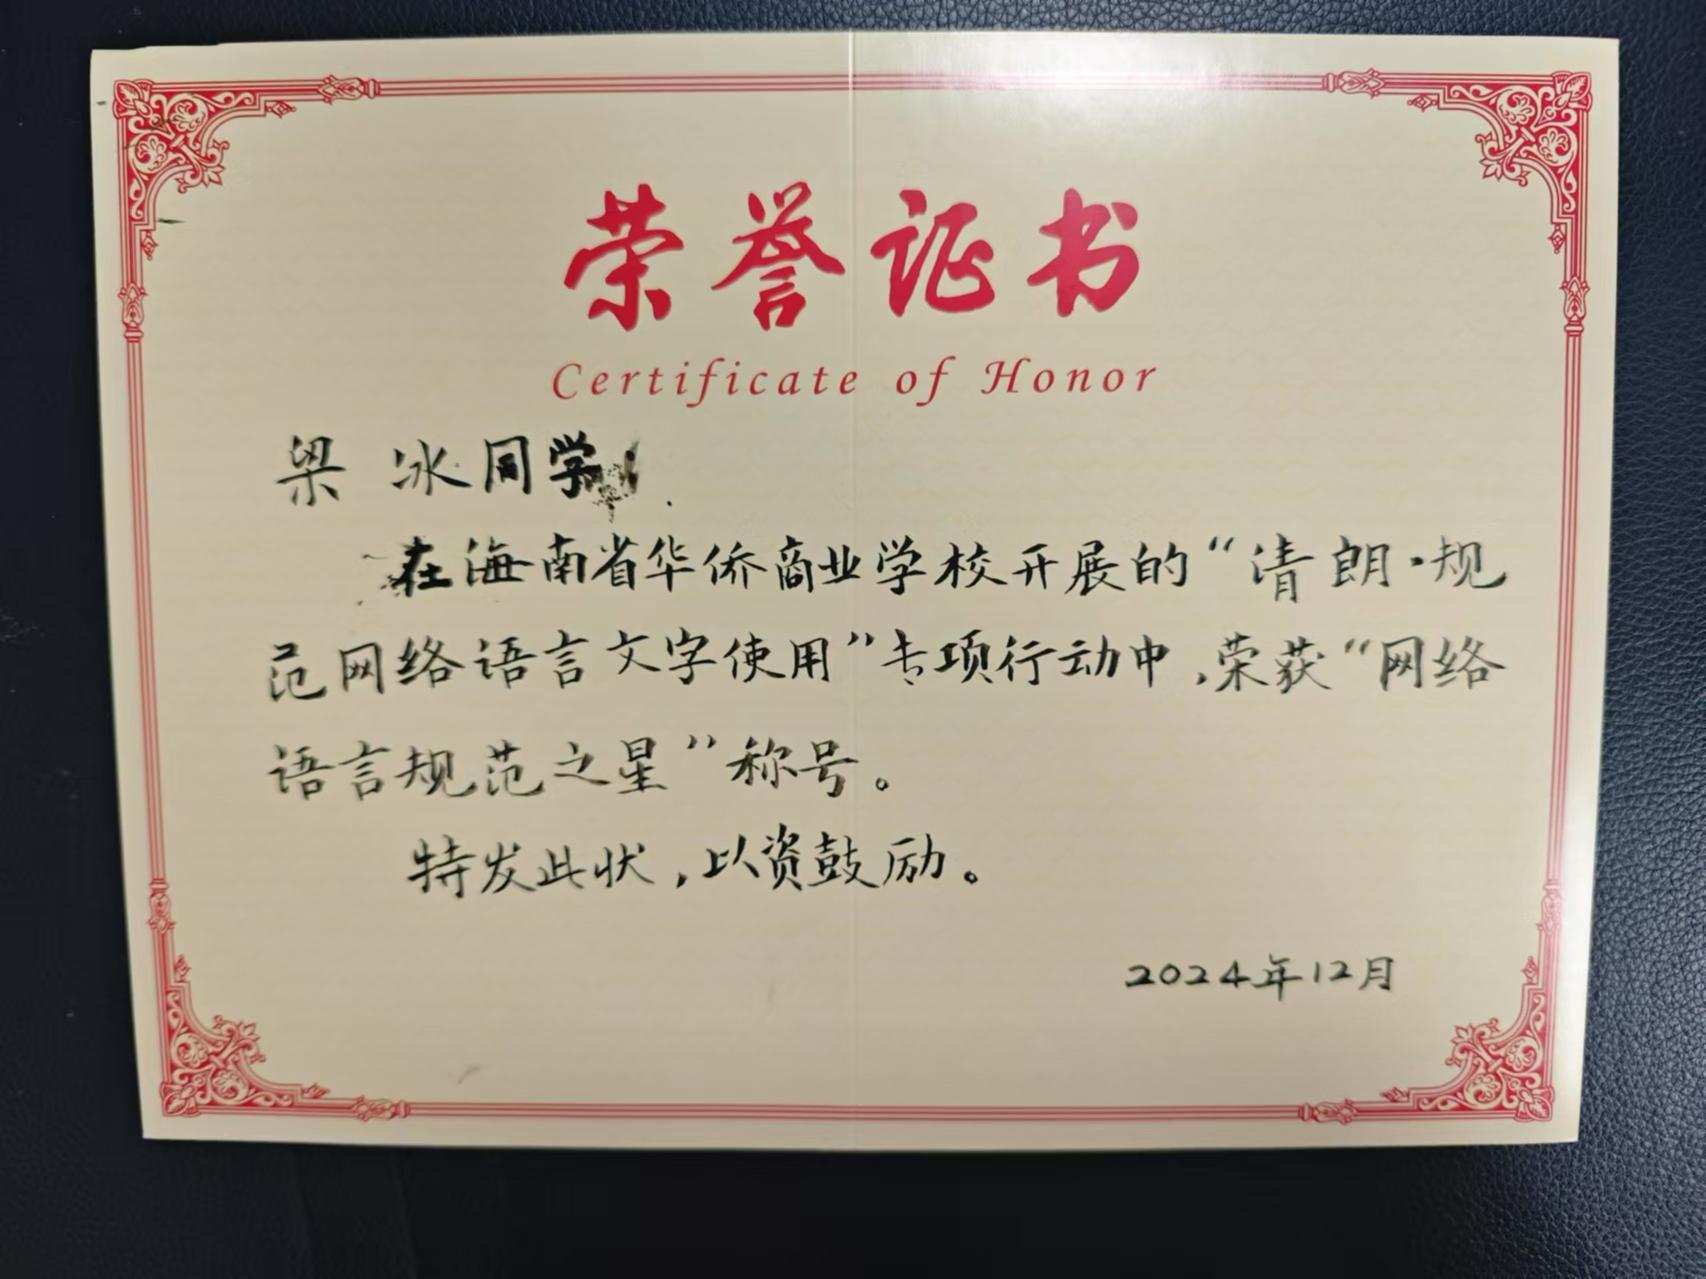 荣誉证书
Certificate of Honor
梁 冰同学
在海南省华侨商业学校开展的“清朗·规
范网络语言文字使用”专项行动中,荣获“网络
语言规范之星”称号。
特发此状,以资鼓励。
2024年12月